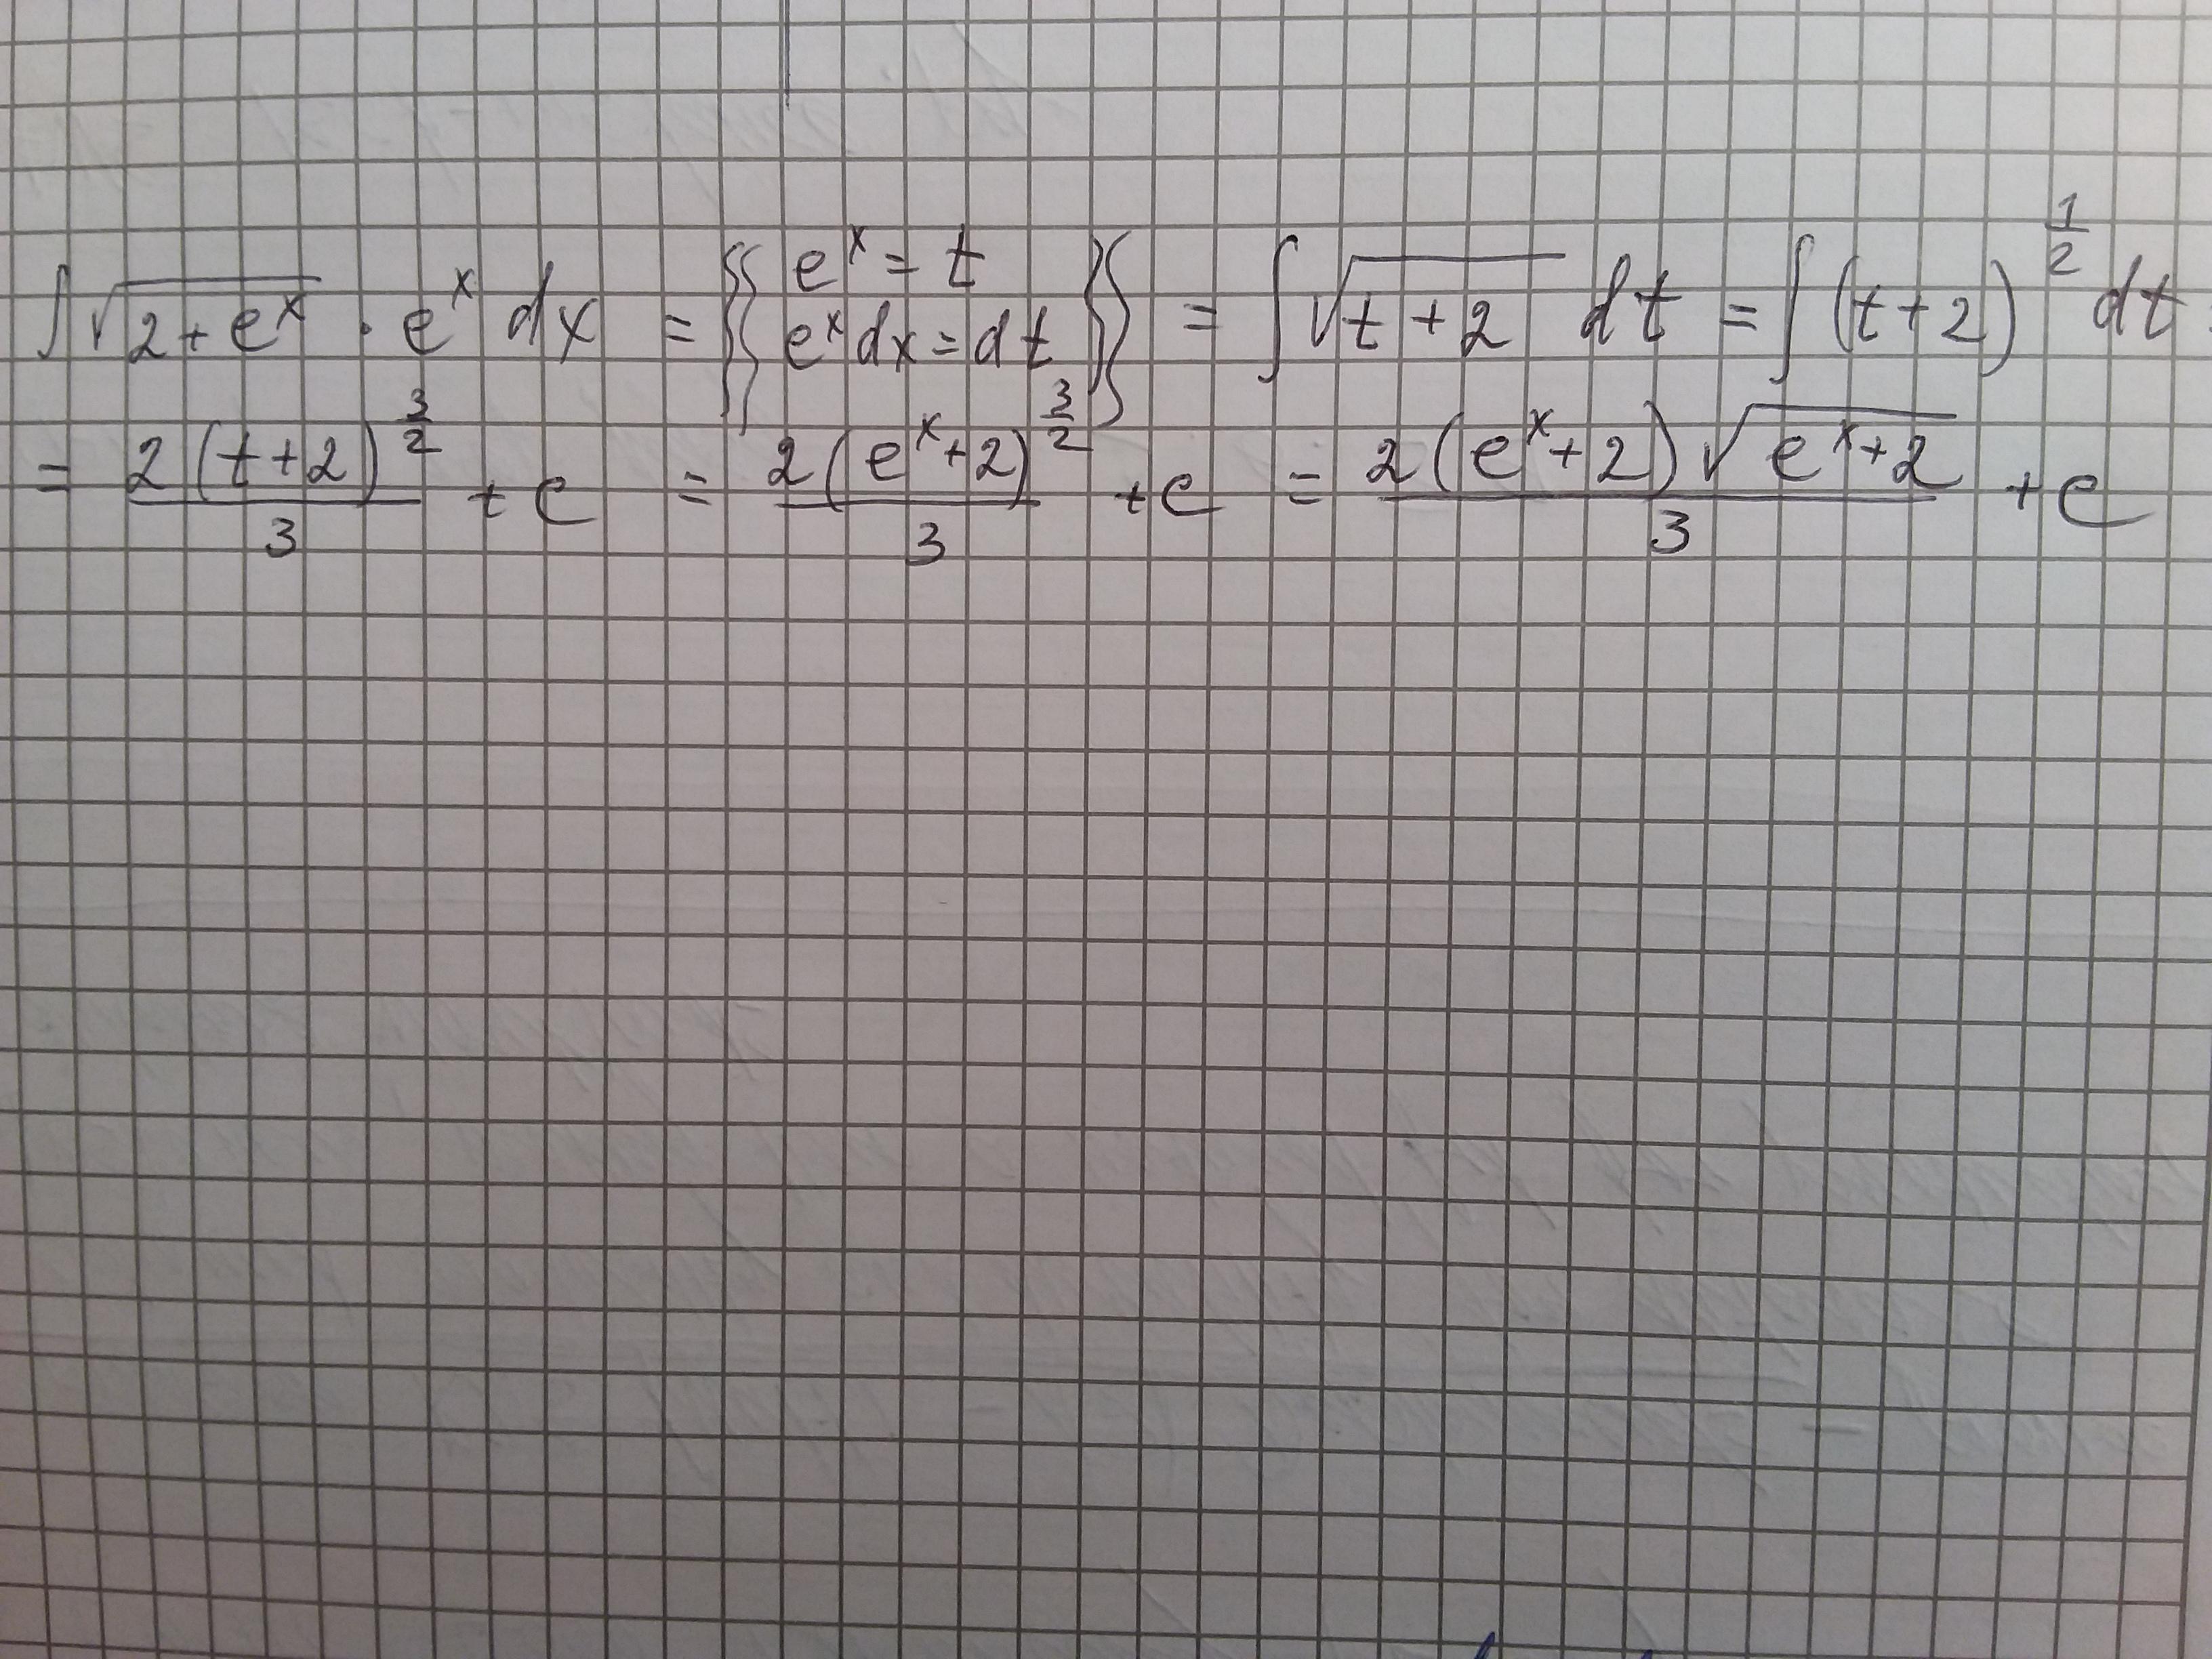 ∫√(2+e^x) · e^x dx = {{e^x = t; e^x dx = dt}} = ∫√(t+2) dt = ∫(t+2)^(1/2) dt
= 2(t+2)^(3/2)/3 + c = 2(e^x+2)^(3/2)/3 + c = 2(e^x+2)√(e^x+2)/3 + c